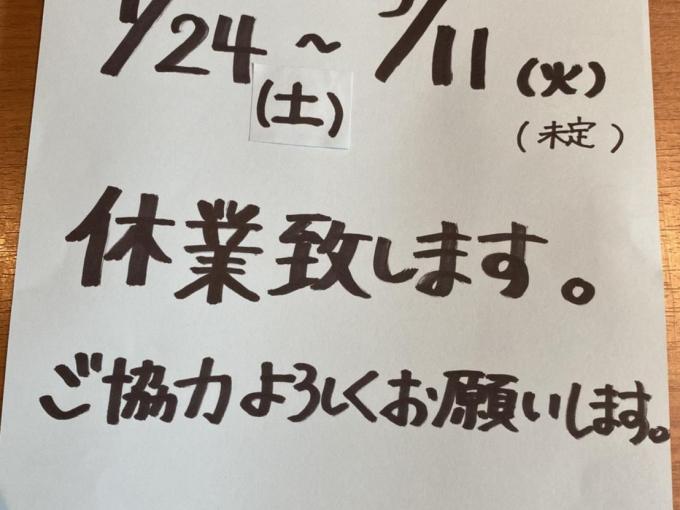 /24 ~ /11 (火)
(土)
(未定)
休業致します。
ご協力よろしくお願いします。